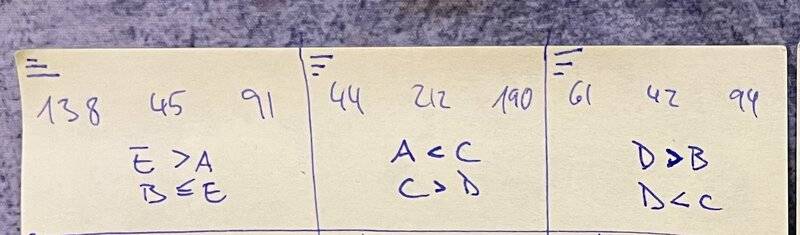 138 45 91
E > A
B ≤ E
44 212 190
A < C
C > D
61 42 94
D > B
D < C